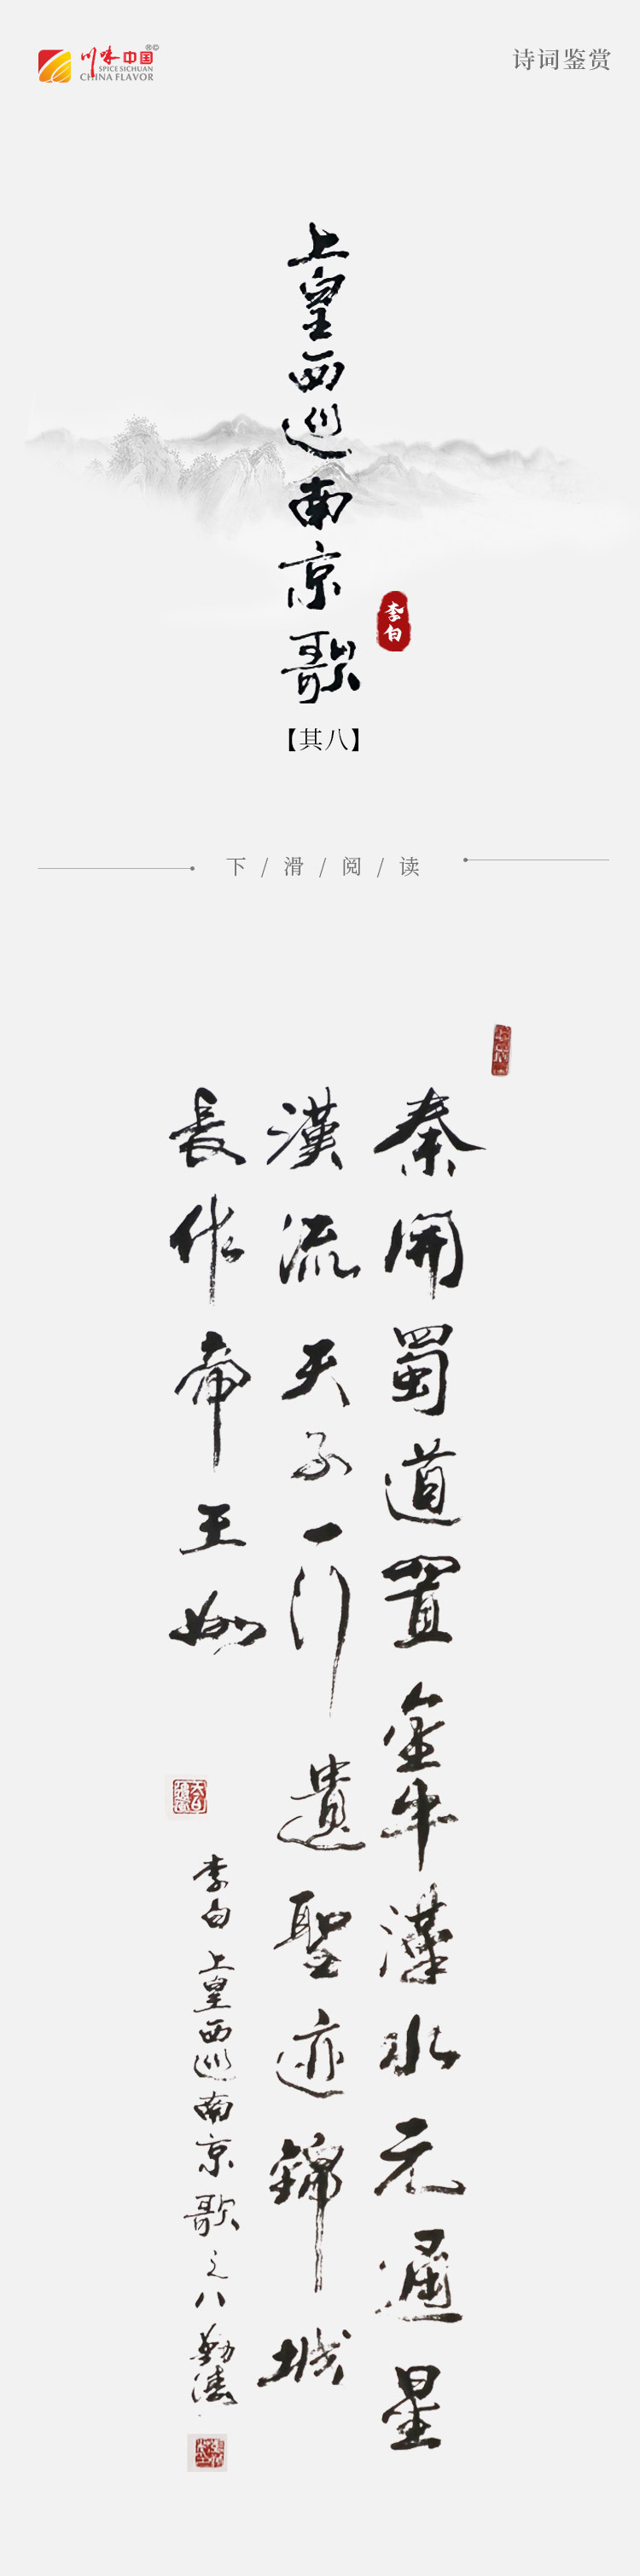 川味中国®©
SPICE SICHUAN
CHINA FLAVOR
诗词鉴赏
上皇西巡南京歌
李白
【其八】
下/滑/阅/读
秦開蜀道置金牛漢水元通星
漢流天子一行遺聖迹錦城
長作帝王州
李白上皇西巡南京歌之八